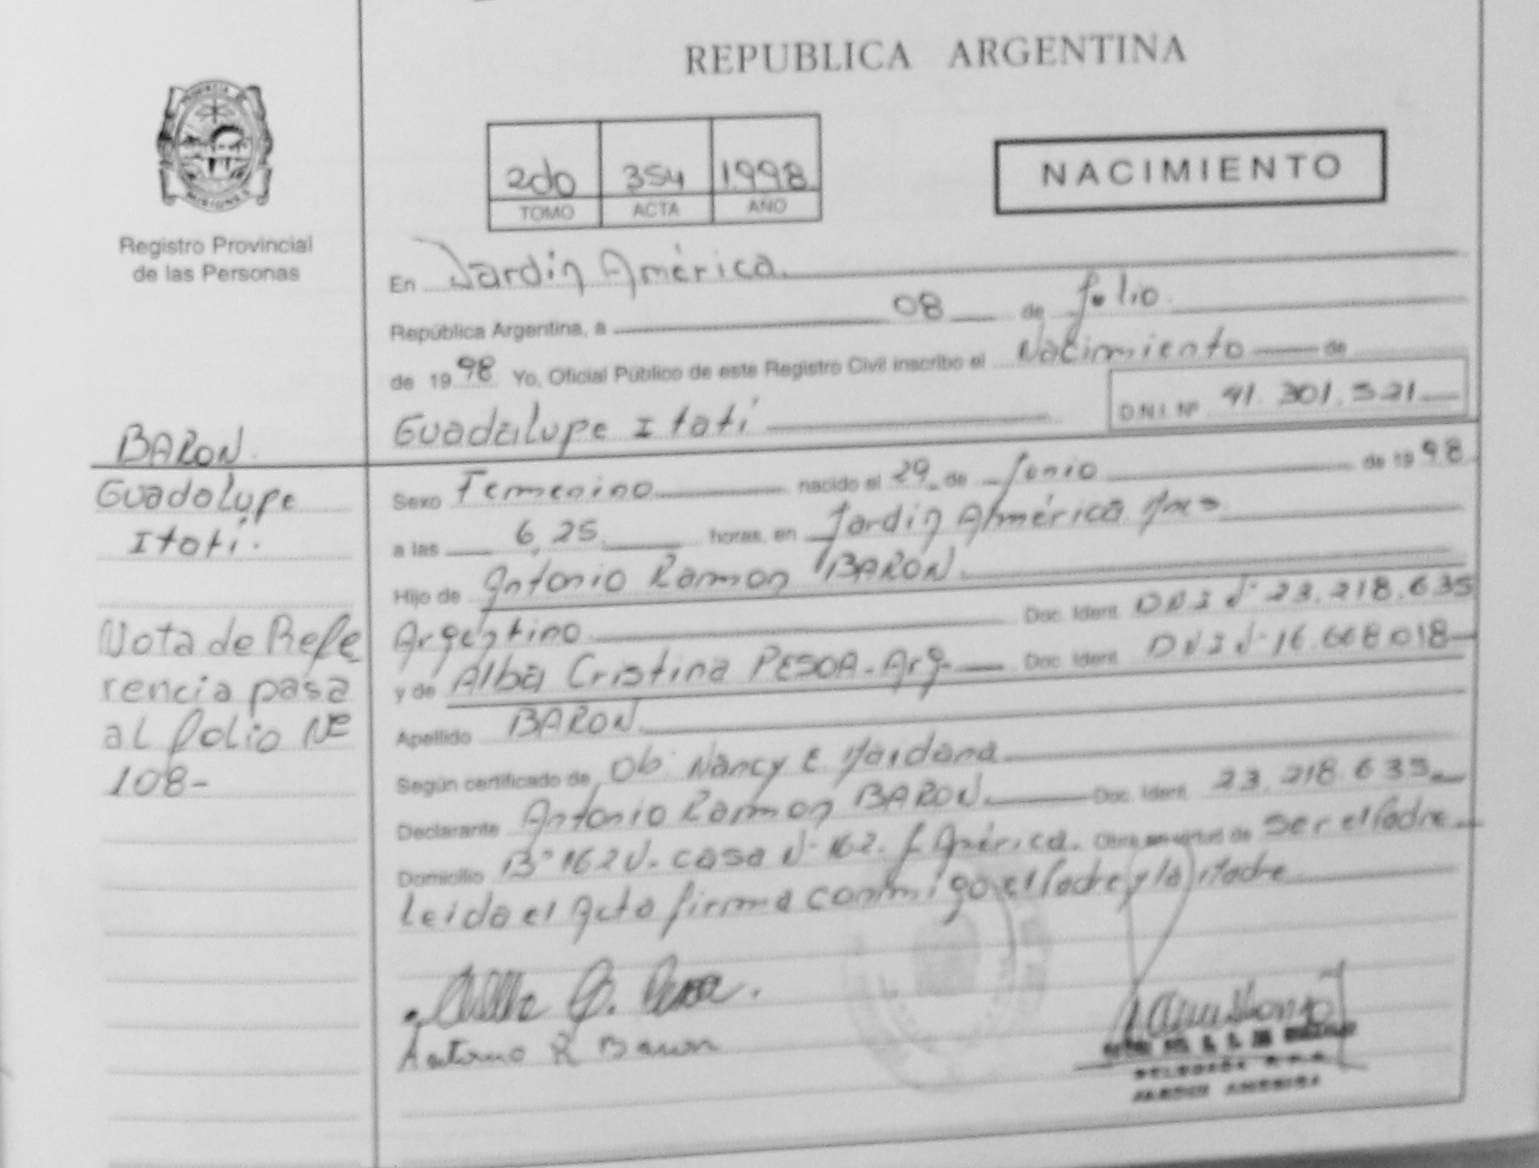 REPUBLICA ARGENTINA
2do 354 1998
TOMO ACTA AÑO
NACIMIENTO
Registro Provincial
de las Personas
En Jardín América.
República Argentina, a 08 de Julio.
de 19 98 Yo, Oficial Público de este Registro Civil inscribo el Nacimiento de
Guadalupe Itatí D.N.I. Nº 41.301.521
BARON.
Guadalupe
Itatí.
Sexo Femenino nacido el 29 de Junio de 19 98
a las 6,25 horas, en Jardín América
Hijo de Antonio Ramon BARON.
Argentino Doc. Ident. DNI Nº 23.218.635
y de Alba Cristina PESOA - Arg Doc. Ident. DNI Nº 16.668018
Apellido BARON
Según certificado de Ob. Nancy E. Maidana
Declarante Antonio Ramon BARON. Doc. Ident. 23.218.635
Domicilio Bº 162 V. casa Nº 162. J. América. Obra en virtud de ser el Padre
leida el Acta firma conmigo el Padre y la Madre
Nota de Refe
rencia pasa
al folio Nº
108-
Antonio R Baron
JARDIN AMERICA